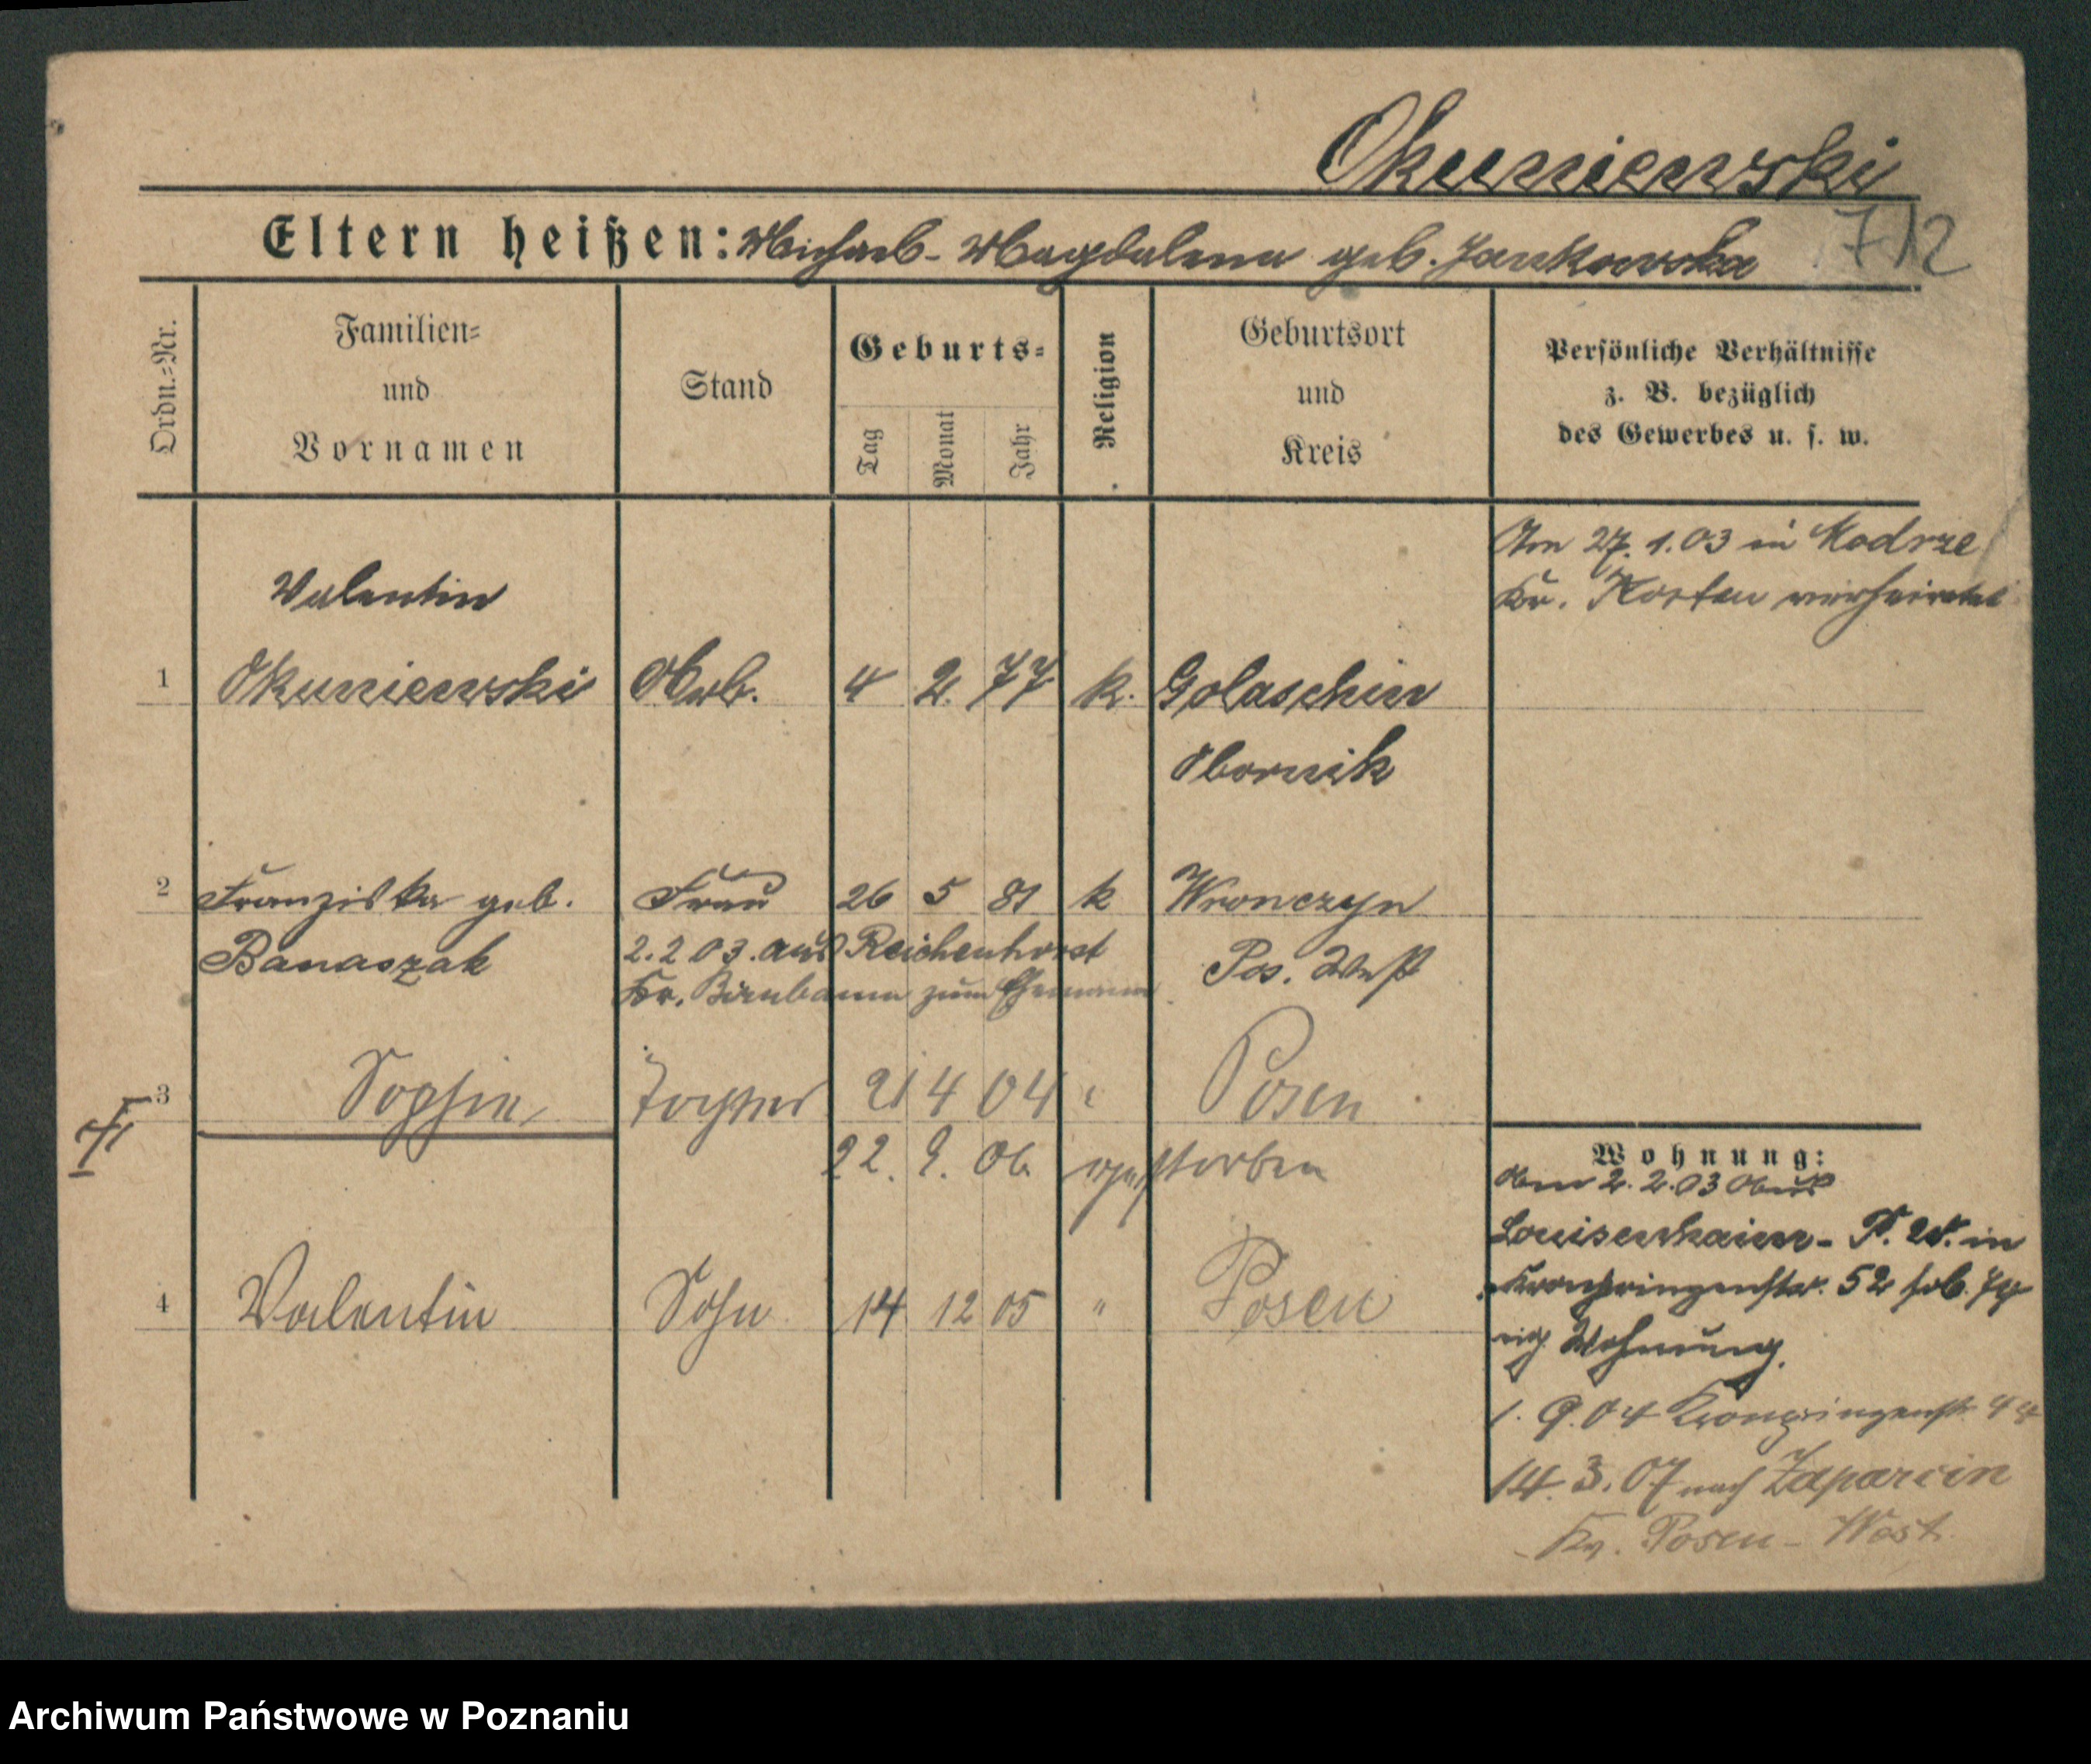 Okuniewski
Eltern heißen: Michael - Magdalena geb. Jankowska 712
Ordn.-Nr.
Familien-
und
Vornamen
Stand
Geburts-
Tag
Monat
Jahr
Religion
Geburtsort
und
Kreis
Persönliche Verhältnisse
z. B. bezüglich
des Gewerbes u. s. w.
Am 27. 1. 03 in Modrze
Kr. Kosten verheiratet
Valentin
1 Okuniewski Arb. 4 2 77 k. Golaschin
Obornik
2 Franziska geb. Frau 26 5 81 k Wronczyn
Banaszak 2. 2 03. aus Reichenhorst Pos. West
Kr. Birnbaum zum Ehemann
3 Sophie, Tochter 21 4 04 Posen
22. 9. 06 gestorben
4 Valentin Sohn 14 12 05 " Posen
Wohnung:
Am 2. 2. 03 Aus
Louisenhain - P. W. in
Kronprinzenstr. 52
eig. Wohnung.
1. 9. 04 Kronprinzenstr. 94
14. 3. 07 nach Zaparcin
Kr. Posen - West.
Archiwum Państwowe w Poznaniu